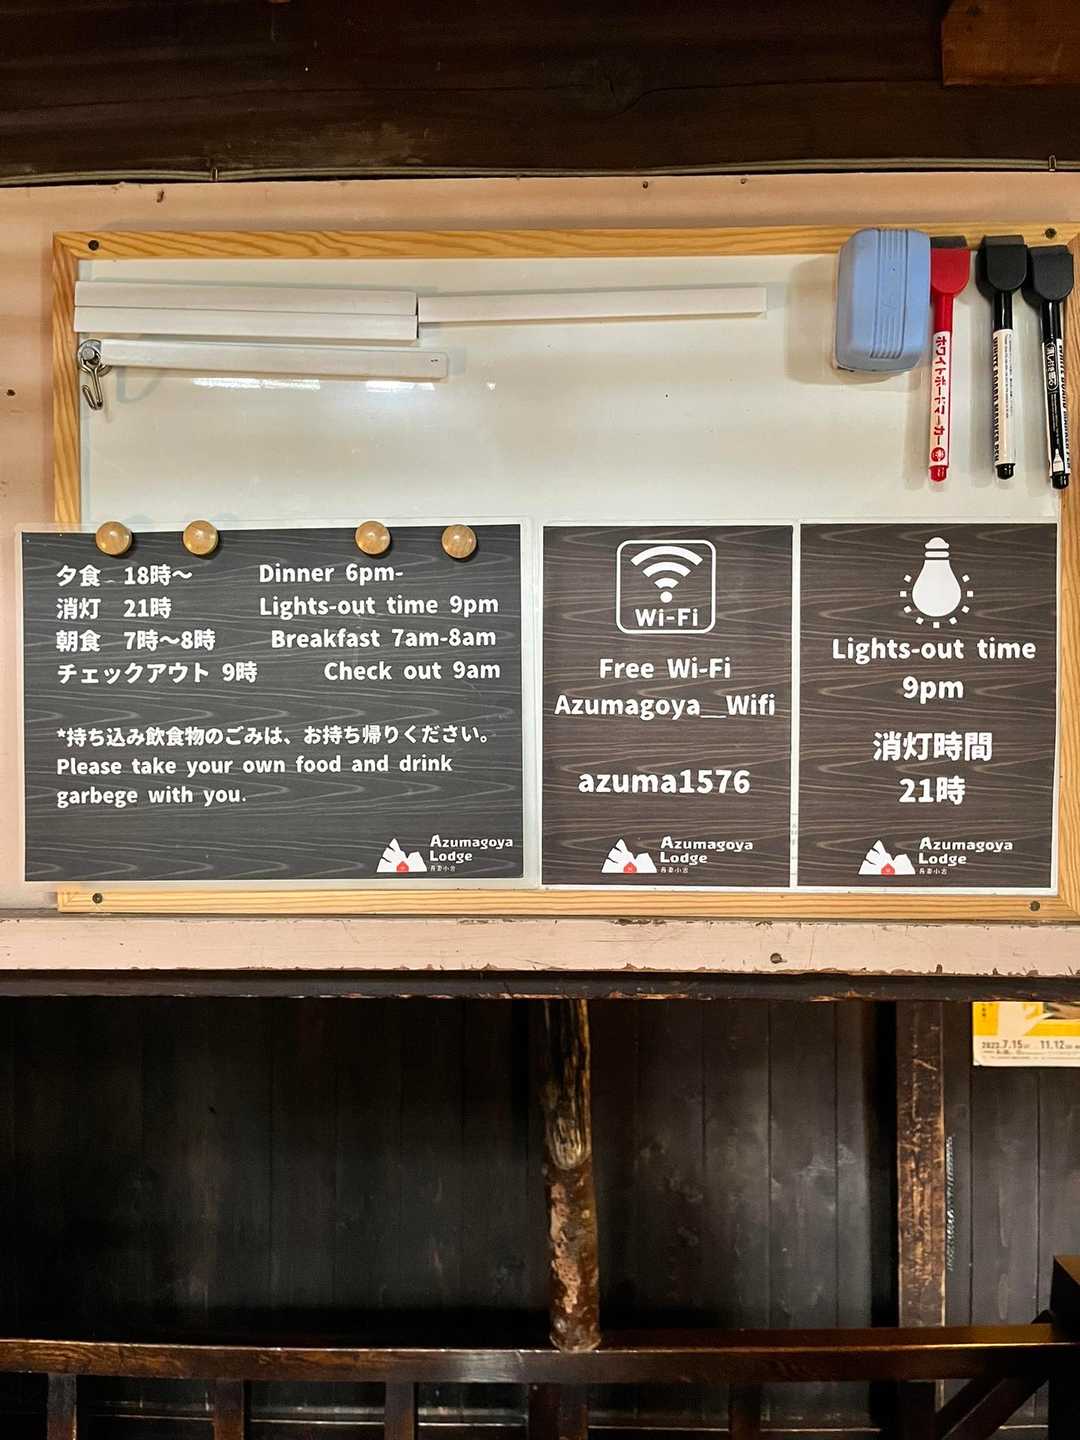 ホワイトボードマーカー
WHITE BOARD MARKER PEN
夕食 18時〜 Dinner 6pm-
消灯 21時 Lights-out time 9pm
朝食 7時〜8時 Breakfast 7am-8am
チェックアウト 9時 Check out 9am
*持ち込み飲食物のごみは、お持ち帰りください。
Please take your own food and drink
garbege with you.
Azumagoya
Lodge
吾妻小舎
Wi-Fi
Free Wi-Fi
Azumagoya__Wifi
azuma1576
Azumagoya
Lodge
吾妻小舎
Lights-out time
9pm
消灯時間
21時
Azumagoya
Lodge
吾妻小舎
2023.7.15 11.12